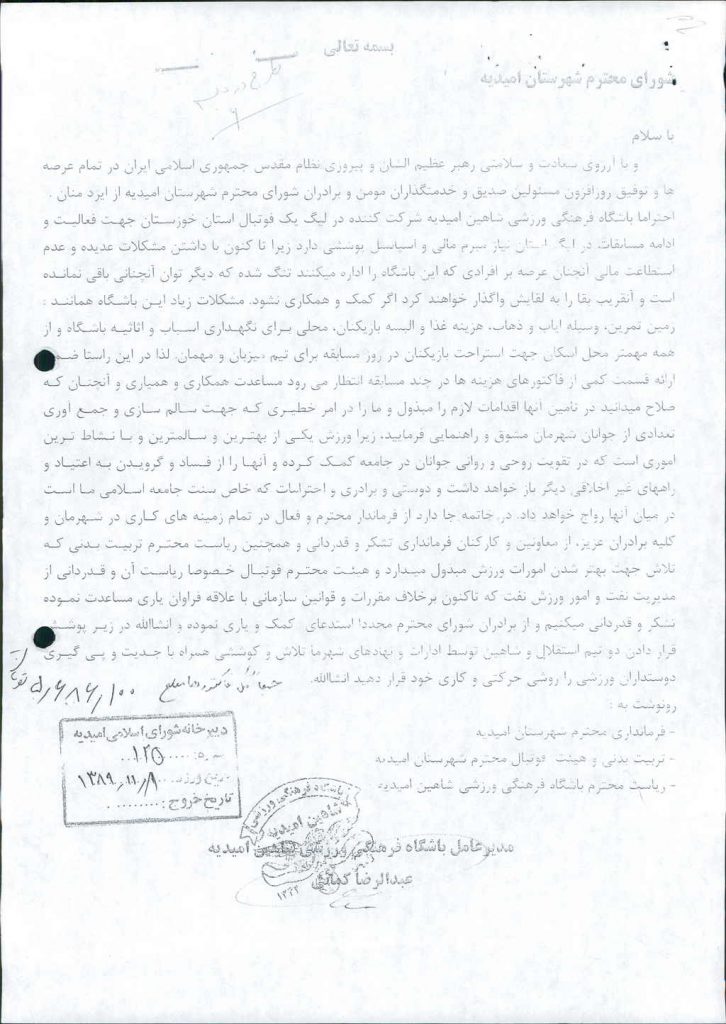 بسمه تعالی
شورای محترم شهرستان امیدیه
با سلام
و با آرزوی سعادت و سلامتی رهبر عظیم الشان و پیروزی نظام مقدس جمهوری اسلامی ایران در تمام عرصه
ها و توفیق روزافزون مسئولین صدیق و خدمتگذاران مومن و برادران شورای محترم شهرستان امیدیه از ایزد منان .
احتراما باشگاه فرهنگی ورزشی شاهین امیدیه شرکت کننده در لیگ یک فوتبال استان خوزستان جهت فعالیت و
ادامه مسابقات در لیگ استان نیاز مبرم مالی و اسپانسر پوششی دارد زیرا تا کنون با داشتن مشکلات عدیده و عدم
استطاعت مالی آنچنان عرصه بر افرادی که این باشگاه را اداره میکنند تنگ شده که دیگر توان آنچنانی باقی نمانده
است و آنقریب بقا را به لقایش واگذار خواهند کرد اگر کمک و همکاری نشود. مشکلات زیاد این باشگاه همانند :
زمین تمرین، وسیله ایاب و ذهاب، هزینه غذا و البسه بازیکنان، محلی برای نگهداری اسباب و اثاثیه باشگاه و از
همه مهمتر محل اسکان جهت استراحت بازیکنان در روز مسابقه برای تیم میزبان و مهمان. لذا در این راستا
ارائه قسمت کمی از فاکتورهای هزینه ها در چند مسابقه انتظار می رود مساعدت همکاری و همیاری و آنچنان که
صلاح میدانید در تامین آنها اقدامات لازم را مبذول و ما را در امر خطیری که جهت سالم سازی و جمع آوری
تعدادی از جوانان شهرمان مشوق و راهنمایی فرمایید، زیرا ورزش یکی از بهترین و سالمترین و با نشاط ترین
اموری است که در تقویت روحی و روانی جوانان در جامعه کمک کرده و آنها را از فساد و گرویدن به اعتیاد و
راههای غیر اخلاقی دیگر باز خواهد داشت و دوستی و برادری و احترامات که خاص سنت جامعه اسلامی ما است
در میان آنها رواج خواهد داد. در خاتمه جا دارد از فرماندار محترم و فعال در تمام زمینه های کاری در شهرمان و
کلیه برادران عزیز، از معاونین و کارکنان فرمانداری تشکر و قدردانی و همچنین ریاست محترم تربیت بدنی که
تلاش جهت بهتر شدن امورات ورزش مبذول میدارد و هیئت محترم فوتبال خصوصا ریاست آن و قدردانی از
مدیریت نفت و امور ورزش نفت که تاکنون برخلاف مقررات و قوانین سازمانی با علاقه فراوان یاری مساعدت نموده
تشکر و قدردانی میکنیم و از برادران شورای محترم مجددا استدعای کمک و یاری نموده و انشاالله در زیر پوشش
قرار دادن دو تیم استقلال و شاهین توسط ادارات و نهادهای شهرما تلاش و کوششی همراه با جدیت و پی گیری
دوستداران ورزشی را روشی حرکتی و کاری خود قرار دهید انشاالله.
رونوشت به :
- فرمانداری محترم شهرستان امیدیه
- تربیت بدنی و هیئت فوتبال محترم شهرستان امیدیه
- ریاست محترم باشگاه فرهنگی ورزشی شاهین امیدیه
دبیرخانه شورای اسلامی امیدیه
۱۲۵
۱۳۸۹/۱۱/۹
تاریخ خروج : ..........
باشگاه فرهنگی ورزشی
شاهین امیدیه
مدیرعامل باشگاه فرهنگی ورزشی شاهین امیدیه
عبدالرضا کمائی